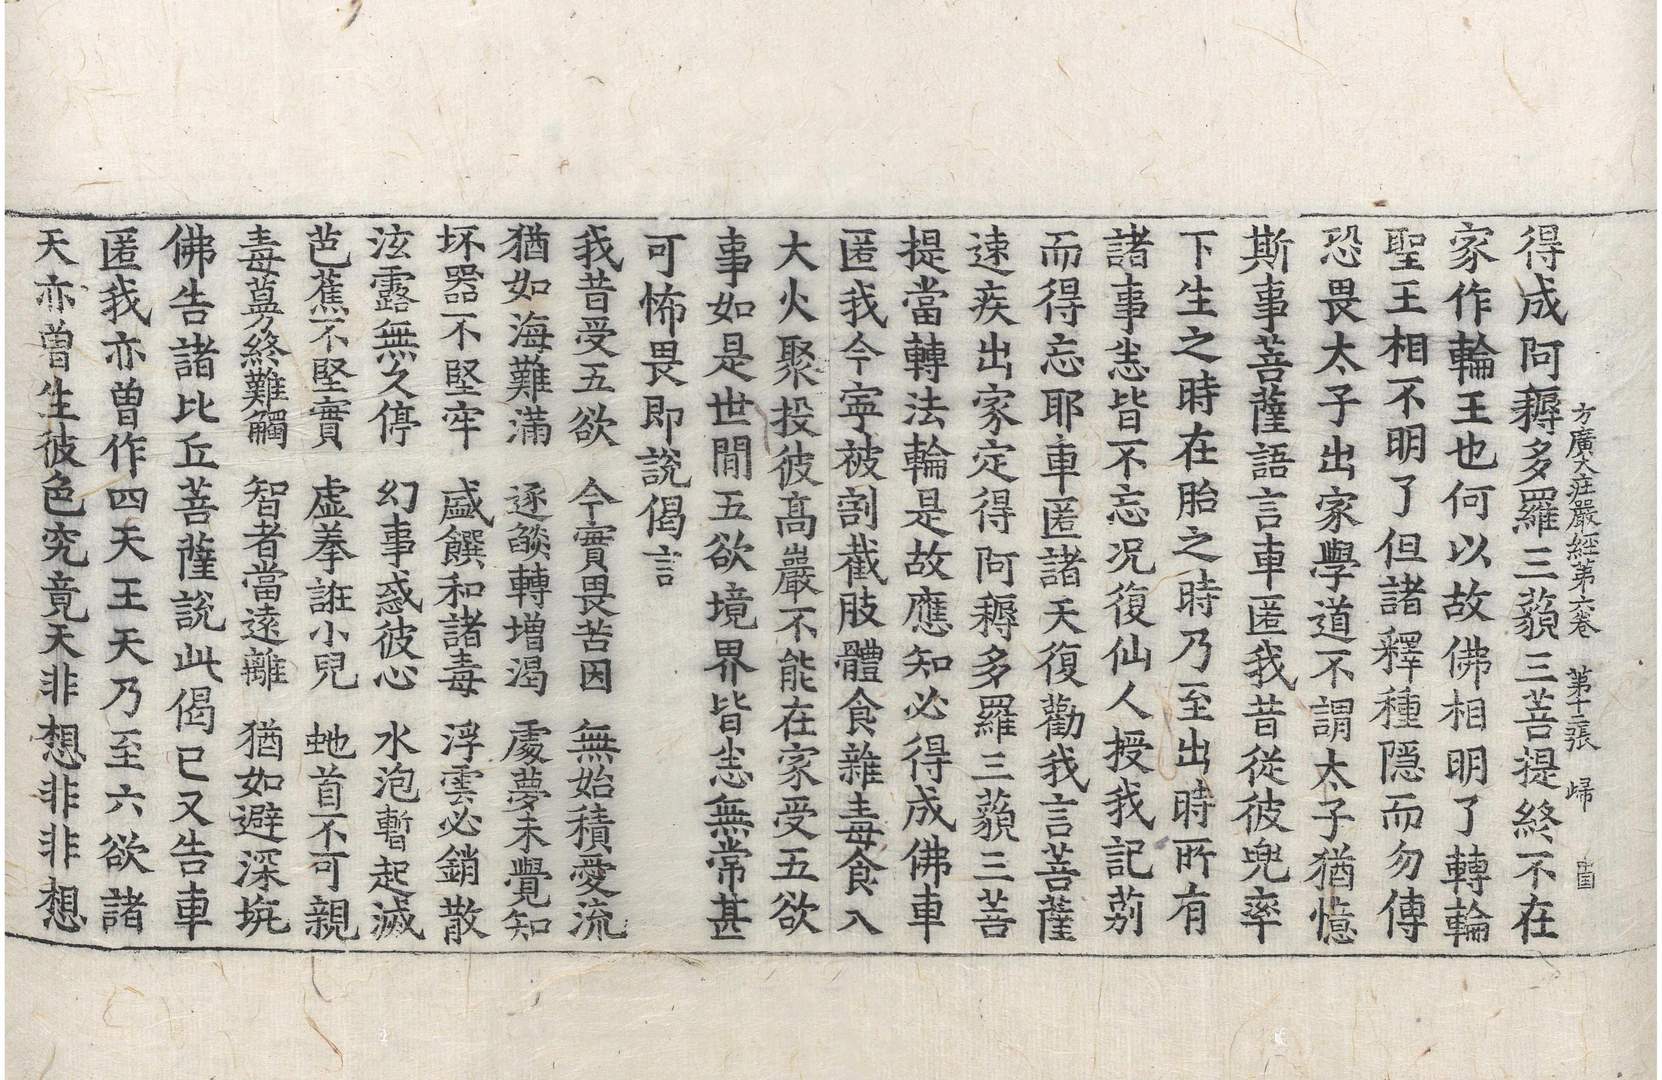 方廣大莊嚴經第六卷 第十二張 歸
得成阿耨多羅三藐三菩提終不在
家作輪王也何以故佛相明了轉輪
聖王相不明了但諸釋種隱而勿傳
恐畏太子出家學道不謂太子猶憶
斯事菩薩語言車匿我昔從彼兜率
下生之時在胎之時乃至出時所有
諸事恙皆不忘况復仙人授我記莂
而得忘耶車匿諸天復勸我言菩薩
速疾出家定得阿耨多羅三藐三菩
提當轉法輪是故應知必得成佛車
匿我今寧被割截肢體食雜毒食入
大火聚投彼高巖不能在家受五欲
事如是世間五欲境界皆恙無常甚
可怖畏即說偈言
我昔受五欲 今實畏苦因 無始積愛流
猶如海難滿 逐燄轉增渴 處夢未覺知
坏器不堅牢 盛饌和諸毒 浮雲必銷散
泫露無久停 幻事惑彼心 水泡暫起滅
芭蕉不堅實 虛拳誑小兒 虵首不可親
毒蕚終難觸 智者當遠離 猶如避深坑
佛告諸比丘菩薩說此偈已又告車
匿我亦曾作四天王天乃至六欲諸
天亦曾生彼色究竟天非想非非想